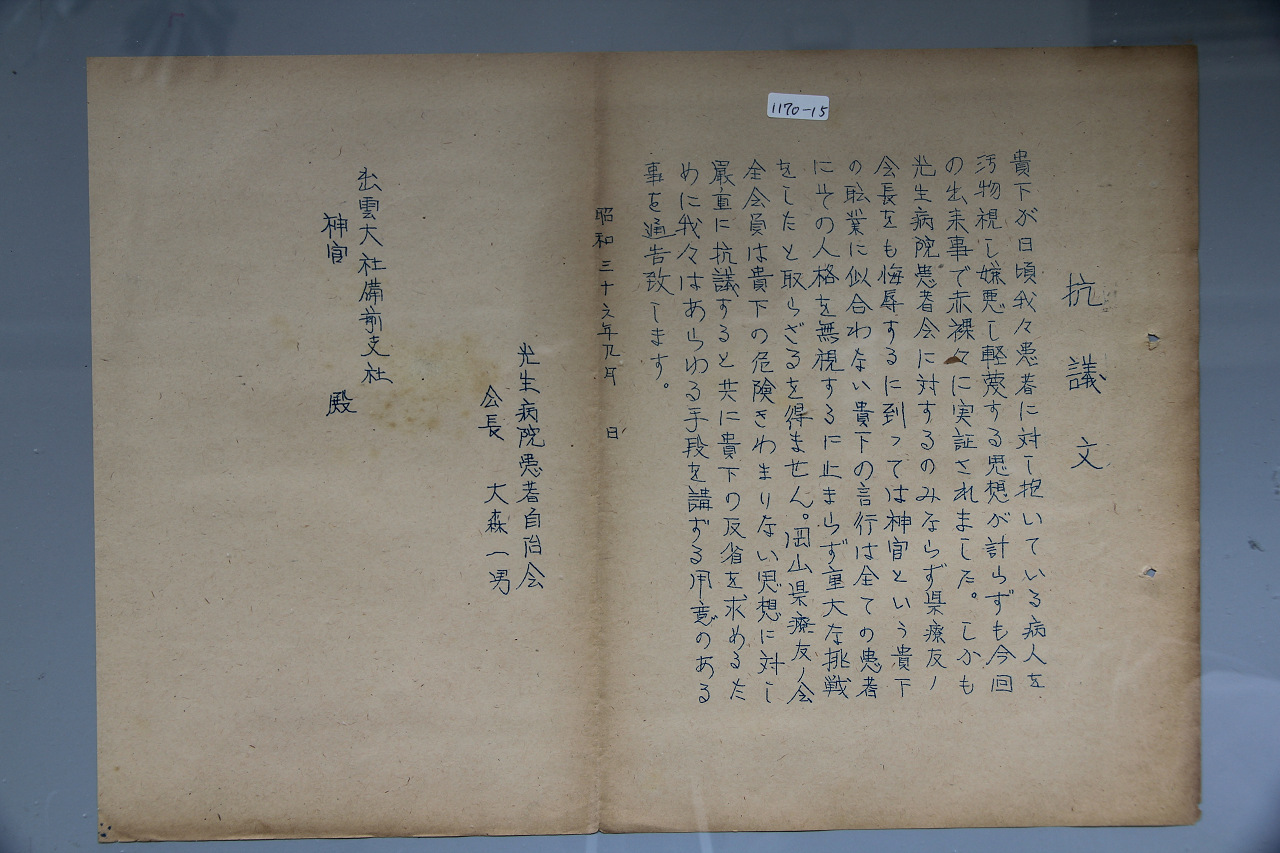 1170-15
抗議文
貴下が日頃我々患者に対し抱いている病人を
汚物視し嫌悪し軽蔑する思想が計らずも今回
の出来事で赤裸々に実証されました。しかも
光生病院患者会に対するのみならず県療友ノ
会長をも侮辱するに到っては神官という貴下
の職業に似合わない貴下の言行は全ての患者
にその人格を無視するに止まらず重大な挑戦
をしたと取らざるを得ません。岡山県療友ノ会
全会員は貴下の危険きわまりない思想に対し
厳重に抗議すると共に貴下の反省を求めるた
めに我々はあらゆる手段を講ずる用意のある
事を通告致します。
昭和三十六年九月 日
光生病院患者自治会
会長 大森一男
出雲大社備前支社
神官 殿